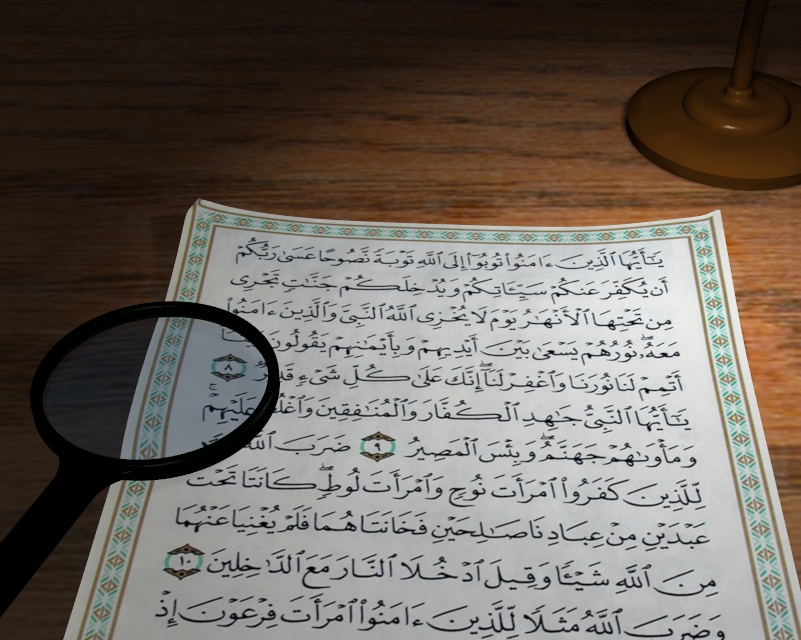 يَـٰٓأَيُّهَا ٱلَّذِينَ ءَامَنُوا۟ تُوبُوٓا۟ إِلَى ٱللَّهِ تَوْبَةً نَّصُوحًا عَسَىٰ رَبُّكُمْ
أَن يُكَفِّرَ عَنكُمْ سَيِّـَٔاتِكُمْ وَيُدْخِلَكُمْ جَنَّـٰتٍ تَجْرِى
مِن تَحْتِهَا ٱلْأَنْهَـٰرُ يَوْمَ لَا يُخْزِى ٱللَّهُ ٱلنَّبِىَّ وَٱلَّذِينَ ءَامَنُوا۟
مَعَهُۥ ۖ نُورُهُمْ يَسْعَىٰ بَيْنَ أَيْدِيهِمْ وَبِأَيْمَـٰنِهِمْ يَقُولُونَ
أَتْمِمْ لَنَا نُورَنَا وَٱغْفِرْ لَنَآ ۖ إِنَّكَ عَلَىٰ كُلِّ شَىْءٍ قَدِيرٌ ٨
يَـٰٓأَيُّهَا ٱلنَّبِىُّ جَـٰهِدِ ٱلْكُفَّارَ وَٱلْمُنَـٰفِقِينَ وَٱغْلُظْ عَلَيْهِمْ ۚ
وَمَأْوَىٰهُمْ جَهَنَّمُ ۖ وَبِئْسَ ٱلْمَصِيرُ ٩ ضَرَبَ ٱللَّهُ
لِّلَّذِينَ كَفَرُوا۟ ٱمْرَأَتَ نُوحٍ وَٱمْرَأَتَ لُوطٍ ۖ كَانَتَا تَحْتَ
عَبْدَيْنِ مِنْ عِبَادِنَا صَـٰلِحَيْنِ فَخَانَتَاهُمَا فَلَمْ يُغْنِيَا عَنْهُمَا
مِنَ ٱللَّهِ شَيْـًٔا وَقِيلَ ٱدْخُلَا ٱلنَّارَ مَعَ ٱلدَّٰخِلِينَ ١٠
وَضَرَبَ ٱللَّهُ مَثَلًا لِّلَّذِينَ ءَامَنُوا۟ ٱمْرَأَتَ فِرْعَوْنَ إِذْ